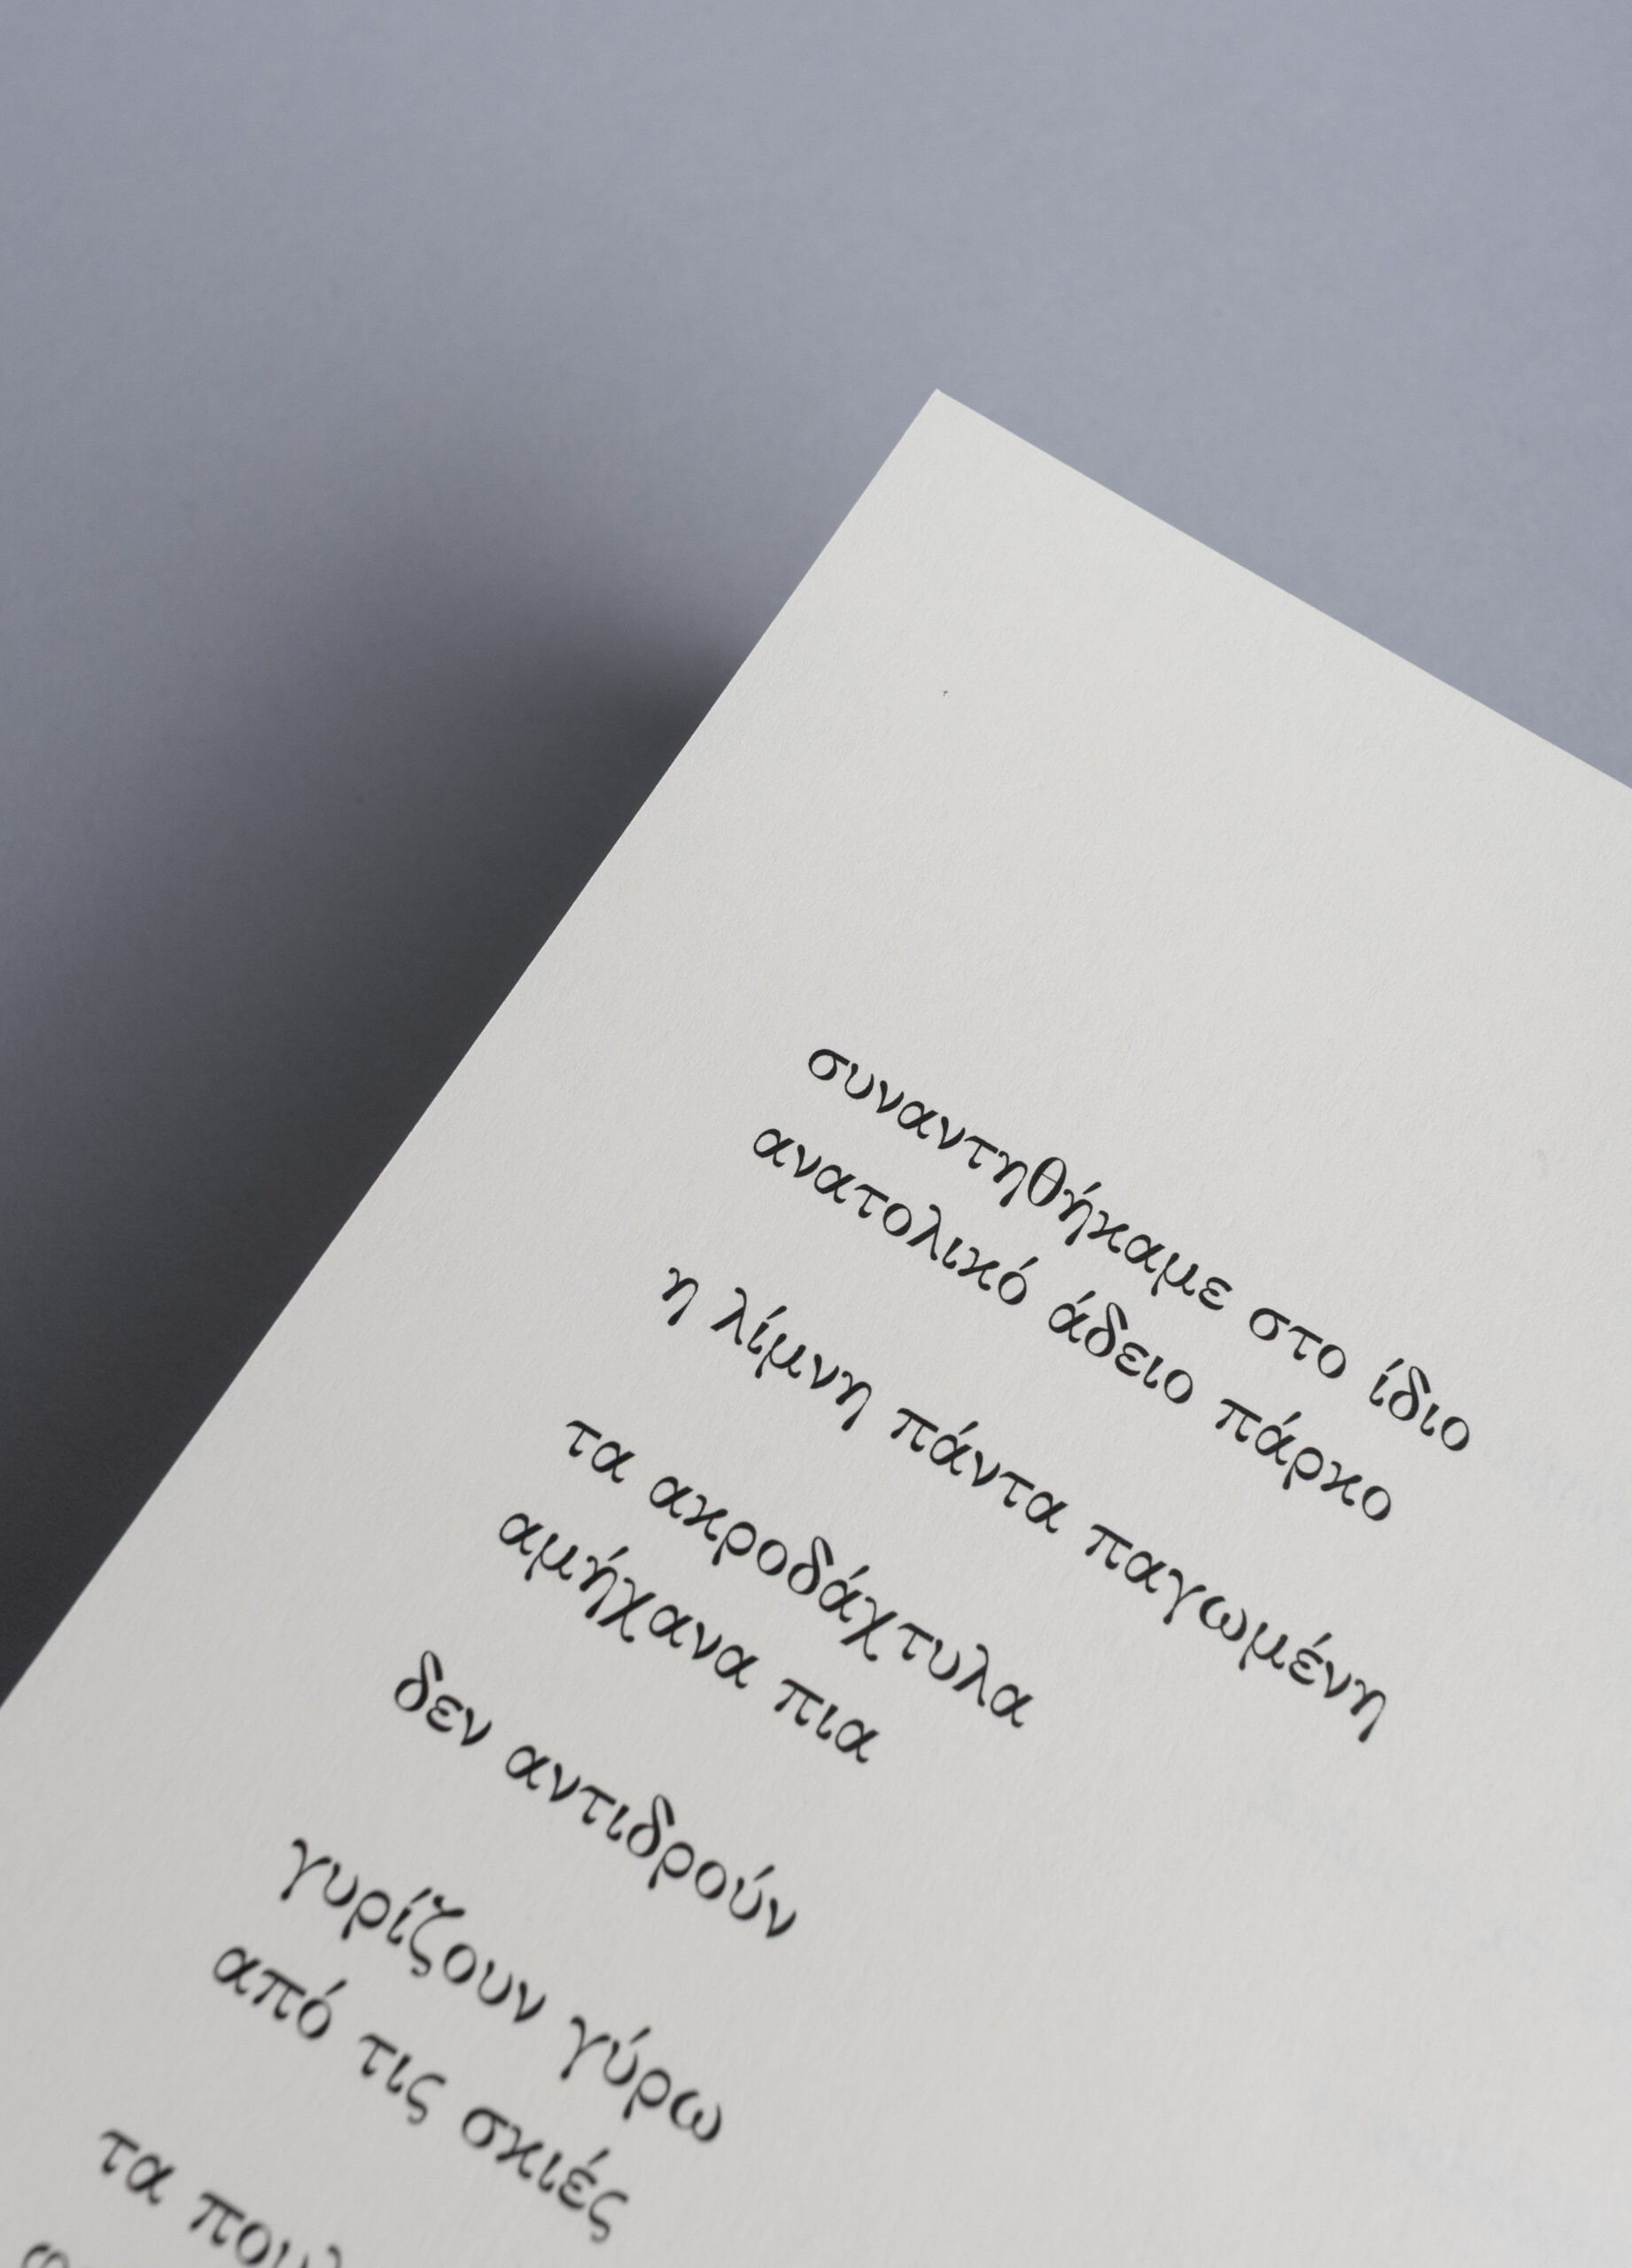 συναντηθήκαμε στο ίδιο
ανατολικό άδειο πάρκο
η λίμνη πάντα παγωμένη
τα ακροδάχτυλα
αμήχανα πια
δεν αντιδρούν
γυρίζουν γύρω
από τις σκιές
τα